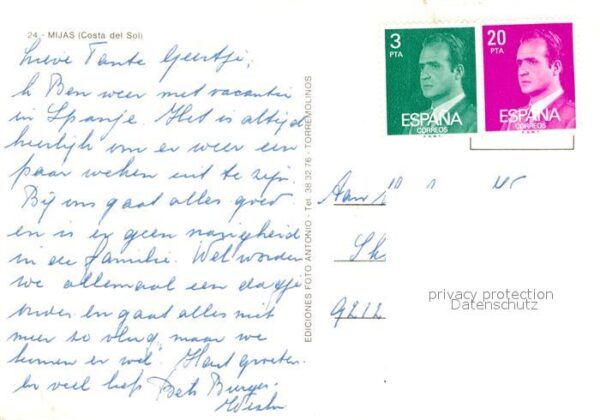 24 - MIJAS (Costa del Sol)
Lieve Tante Geertje,
Ik Ben weer met vacantie
in Spanje. Het is altijd
heerlijk om er weer een
paar weken uit te zijn.
Bij ons gaat alles goed
en is er geen narigheid
in de familie. Wel worden
we allemaal een dagje
ouder en gaat alles niet
meer zo vlug, maar we
komen er wel. Hart. groeten
en veel liefs Bets Burger
EDICIONES FOTO ANTONIO - Tel. 38.32.76 - TORREMOLINOS
3
PTA
ESPAÑA
CORREOS
20
PTA
ESPAÑA
CORREOS
Aan
privacy protection
Datenschutz